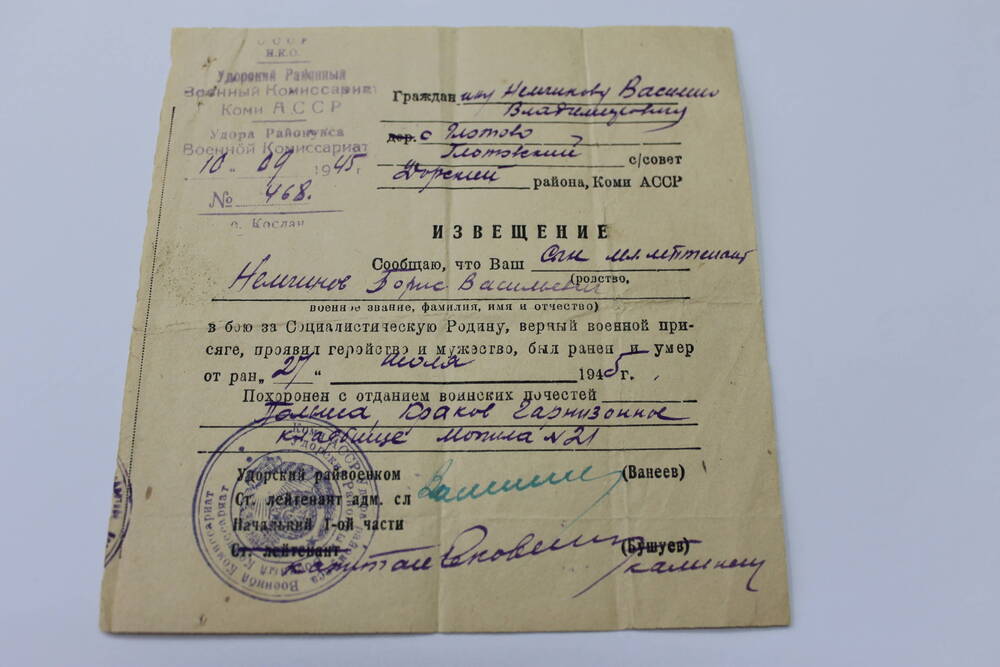 СССР
Н.К.О.
Удорский Районный
Военный Комиссариат
Коми АССР
Удора Районувса
Военной Комиссариат
10 " 09 1945 г
№ 468.
с. Кослан
Гражданину Немчинову Василию
Владимировичу
дер. с Глотово
Глотовский с/совет
Удорский района, Коми АССР
ИЗВЕЩЕНИЕ
Сообщаю, что Ваш Сын мл. лейтенант
(родство,
Немчинов Борис Васильевич
военное звание, фамилия, имя и отчество)
в бою за Социалистическую Родину, верный военной при-
сяге, проявил геройство и мужество, был ранен и умер
от ран „ 27 " июля 1945 г.
Похоронен с отданием воинских почестей
Польша, Краков Гарнизонное
кладбище могила № 21
Удорский райвоенком (Ванеев)
Ст. лейтенант адм. сл
Начальник 1-ой части
Ст. лейтенант (Бушуев)
капитан